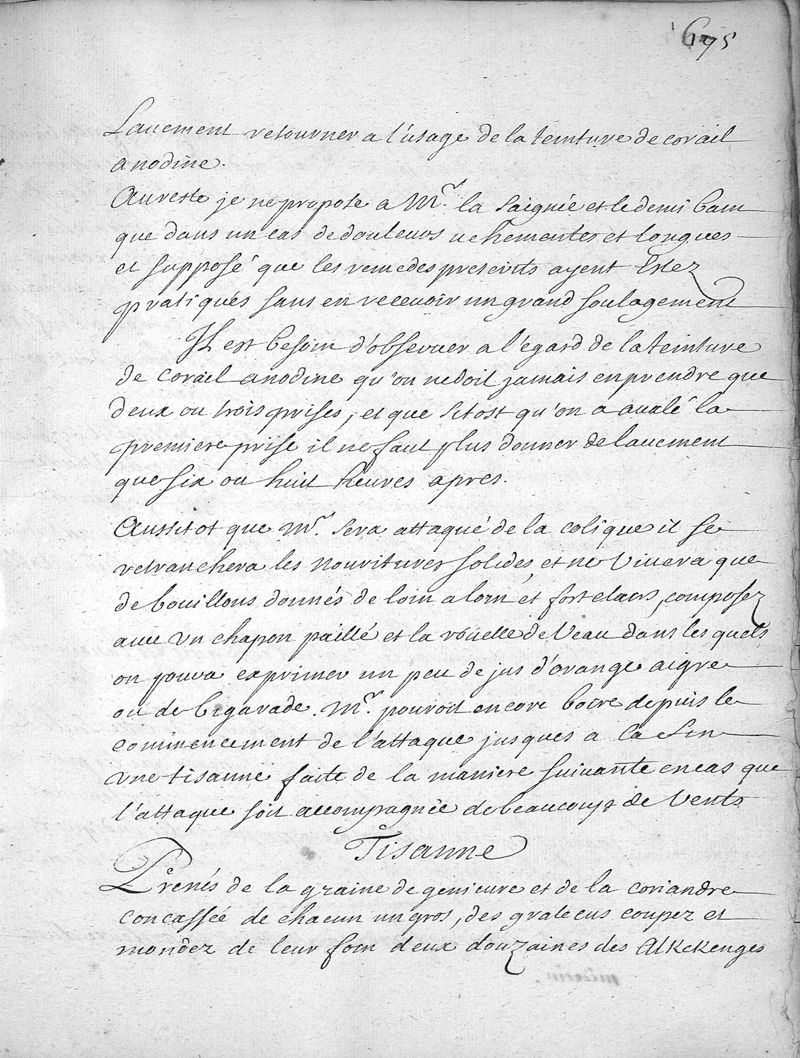 675
Lauement retourner a l'usage de la teinture de corail
anodine.
Au reste je ne propose a Mr. la saignée et le demi bain
que dans un cas de douleurs uehementes et longues
et supposé que les remedes prescrits ayent Estez
pratiqués sans en receuoir un grand soulagement
Il est besoin d'obseruer a l'égard de la teinture
de corail anodine qu'on ne doit jamais en prendre que
deux ou trois prises, et que sitost qu'on a aualé la
premiere prise il ne faut plus donner de lauement
que six ou huit heures apres.
Aussitot que Mr. sera attaqué de la colique il se
retranchera les nourritures solides, et ne Viuera que
de bouillons donnés de loin a loin et fort clairs, composez
auec Vn chapon paillé et la roüelle de Veau dans les quels
on poura exprimer un peu de jus d'orange aigre
ou de bigarade. Mr. pouroit encore boire depuis le
commencement de l'attaque jusques a la fin
Vne tisanne faite de la maniere suivante en cas que
l'attaque soit accompagnée de beaucoup de Vents
Tisanne
Prenés de la graine de genieure et de la coriandre
concassée de chacun un gros, des gratecus coupez et
mondez de leur foin deux douzaines des Alkekenges